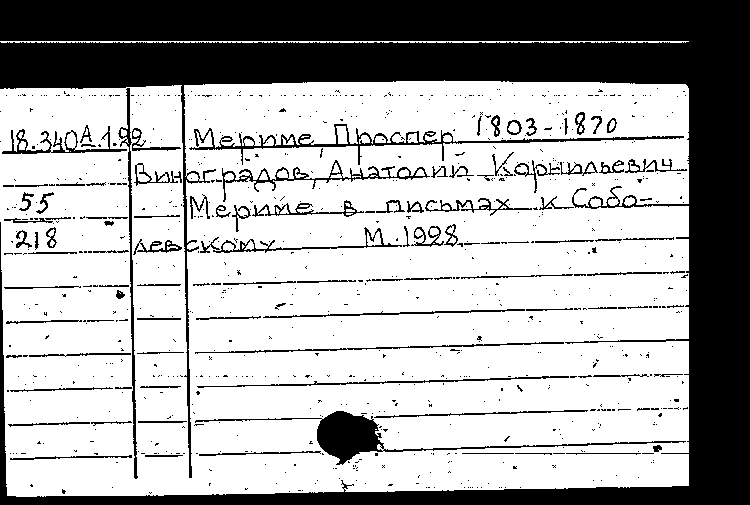 18.340А.1.92 Мериме, Проспер 1803-1870
Виноградов, Анатолий Корнильевич
55 Мериме в письмах к Собо-
218 левскому М. 1928